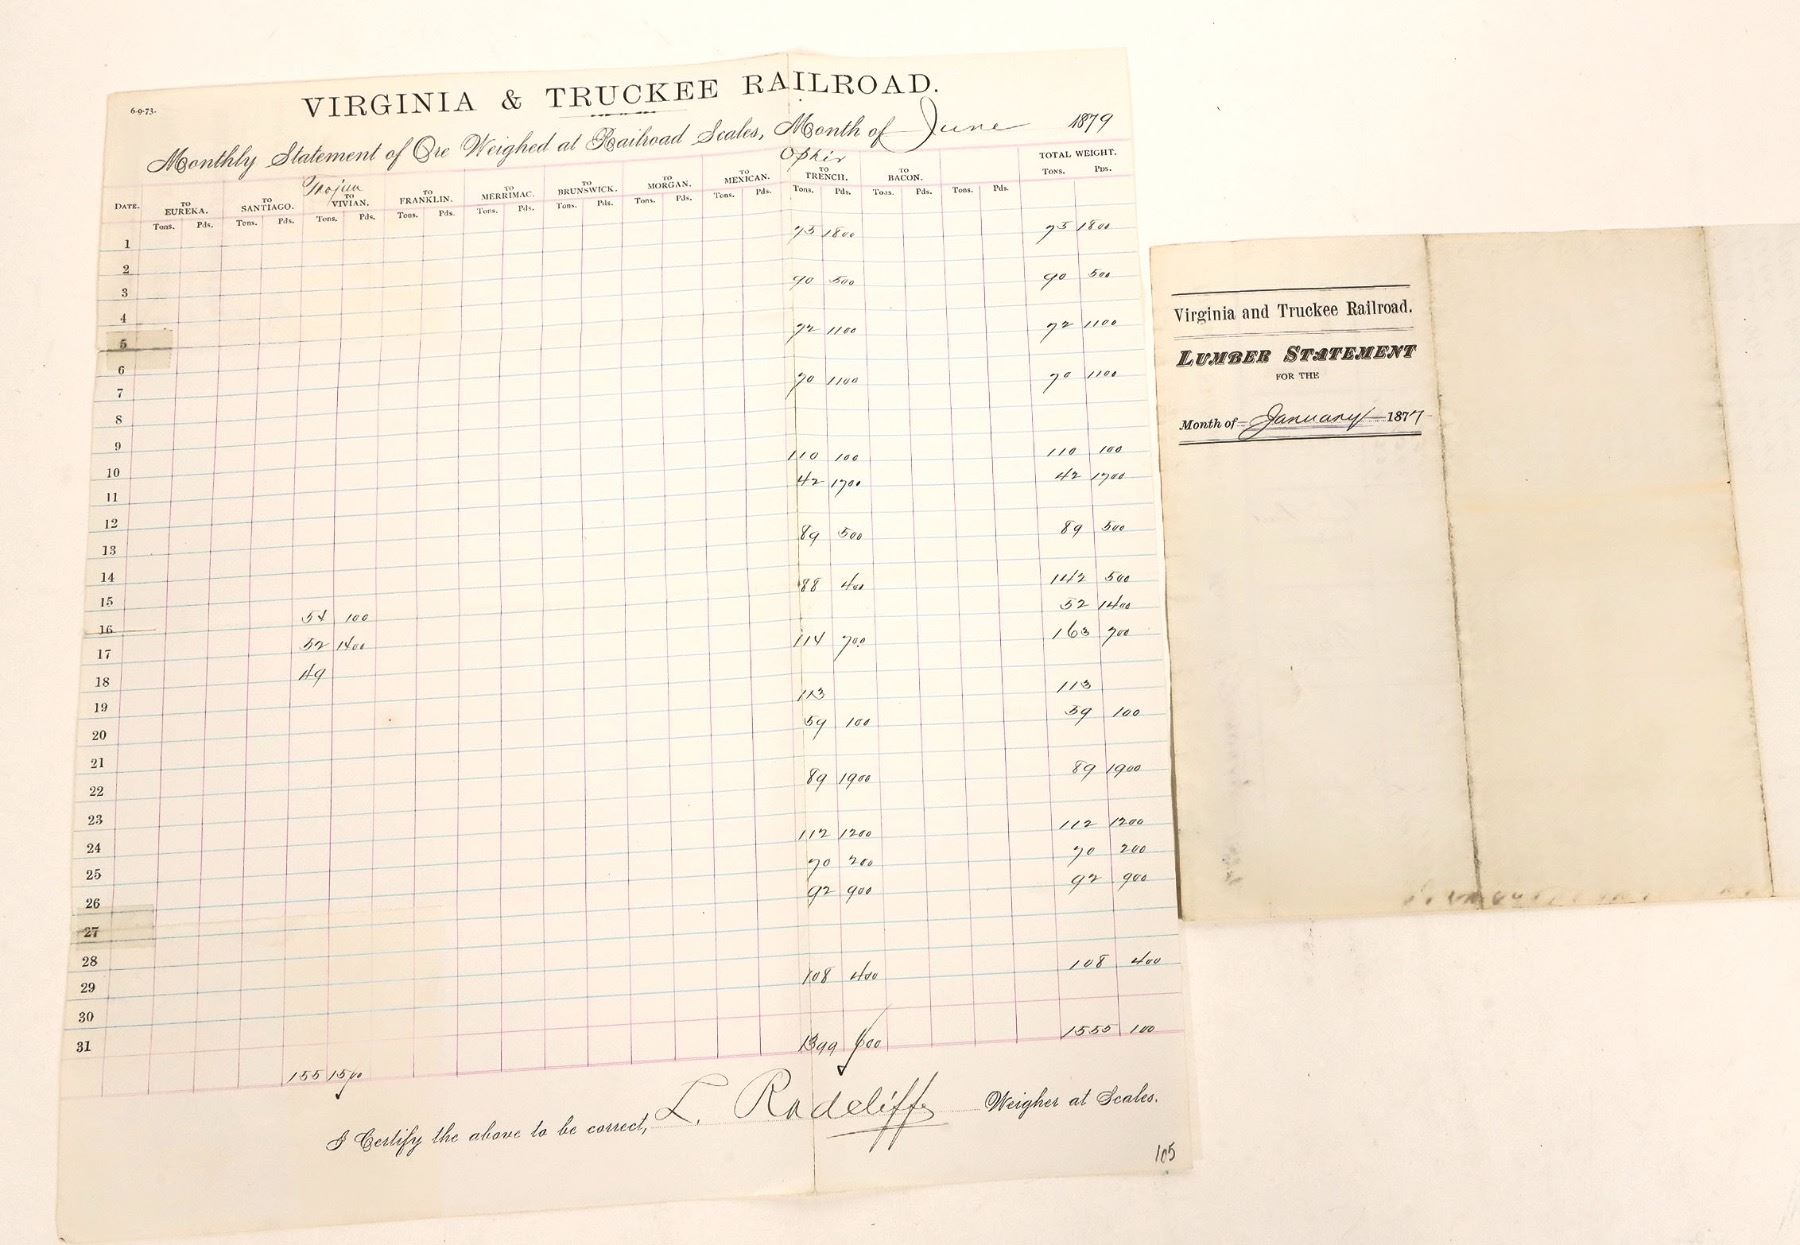 6-9-73.
VIRGINIA & TRUCKEE RAILROAD.
Monthly Statement of Ore Weighed at Railroad Scales, Month of June 1879
Trojan Ophir
DATE. TO EUREKA. TO SANTIAGO. TO VIVIAN. TO FRANKLIN. TO MERRIMAC. TO BRUNSWICK. TO MORGAN. TO MEXICAN. TO TRENCH. TO BACON. TOTAL WEIGHT.
Tons. Pds. Tons. Pds. Tons. Pds. Tons. Pds. Tons. Pds. Tons. Pds. Tons. Pds. Tons. Pds. Tons. Pds. Tons. Pds. Tons. Pds. Tons. Pds.
1 73 1800 73 1800
2
3 90 500 90 500
4
5 72 1100 72 1100
6
7 70 1100 70 1100
8
9
10 110 100 110 100
11 42 1700 42 1700
12
13 89 500 89 500
14
15
16 54 100 88 400 142 500
17 52 1400 52 1400
18 49 114 700 163 700
19
20 113 113
21 59 100 59 100
22
23 89 1900 89 1900
24
25 112 1200 112 1200
26 70 200 70 200
27 92 900 92 900
28
29
30 108 400 108 400
31
155 1500 1399 600 1555 100
I Certify the above to be correct, L. Radcliffe Weigher at Scales.
105
Virginia and Truckee Railroad.
LUMBER STATEMENT
FOR THE
Month of January 1877